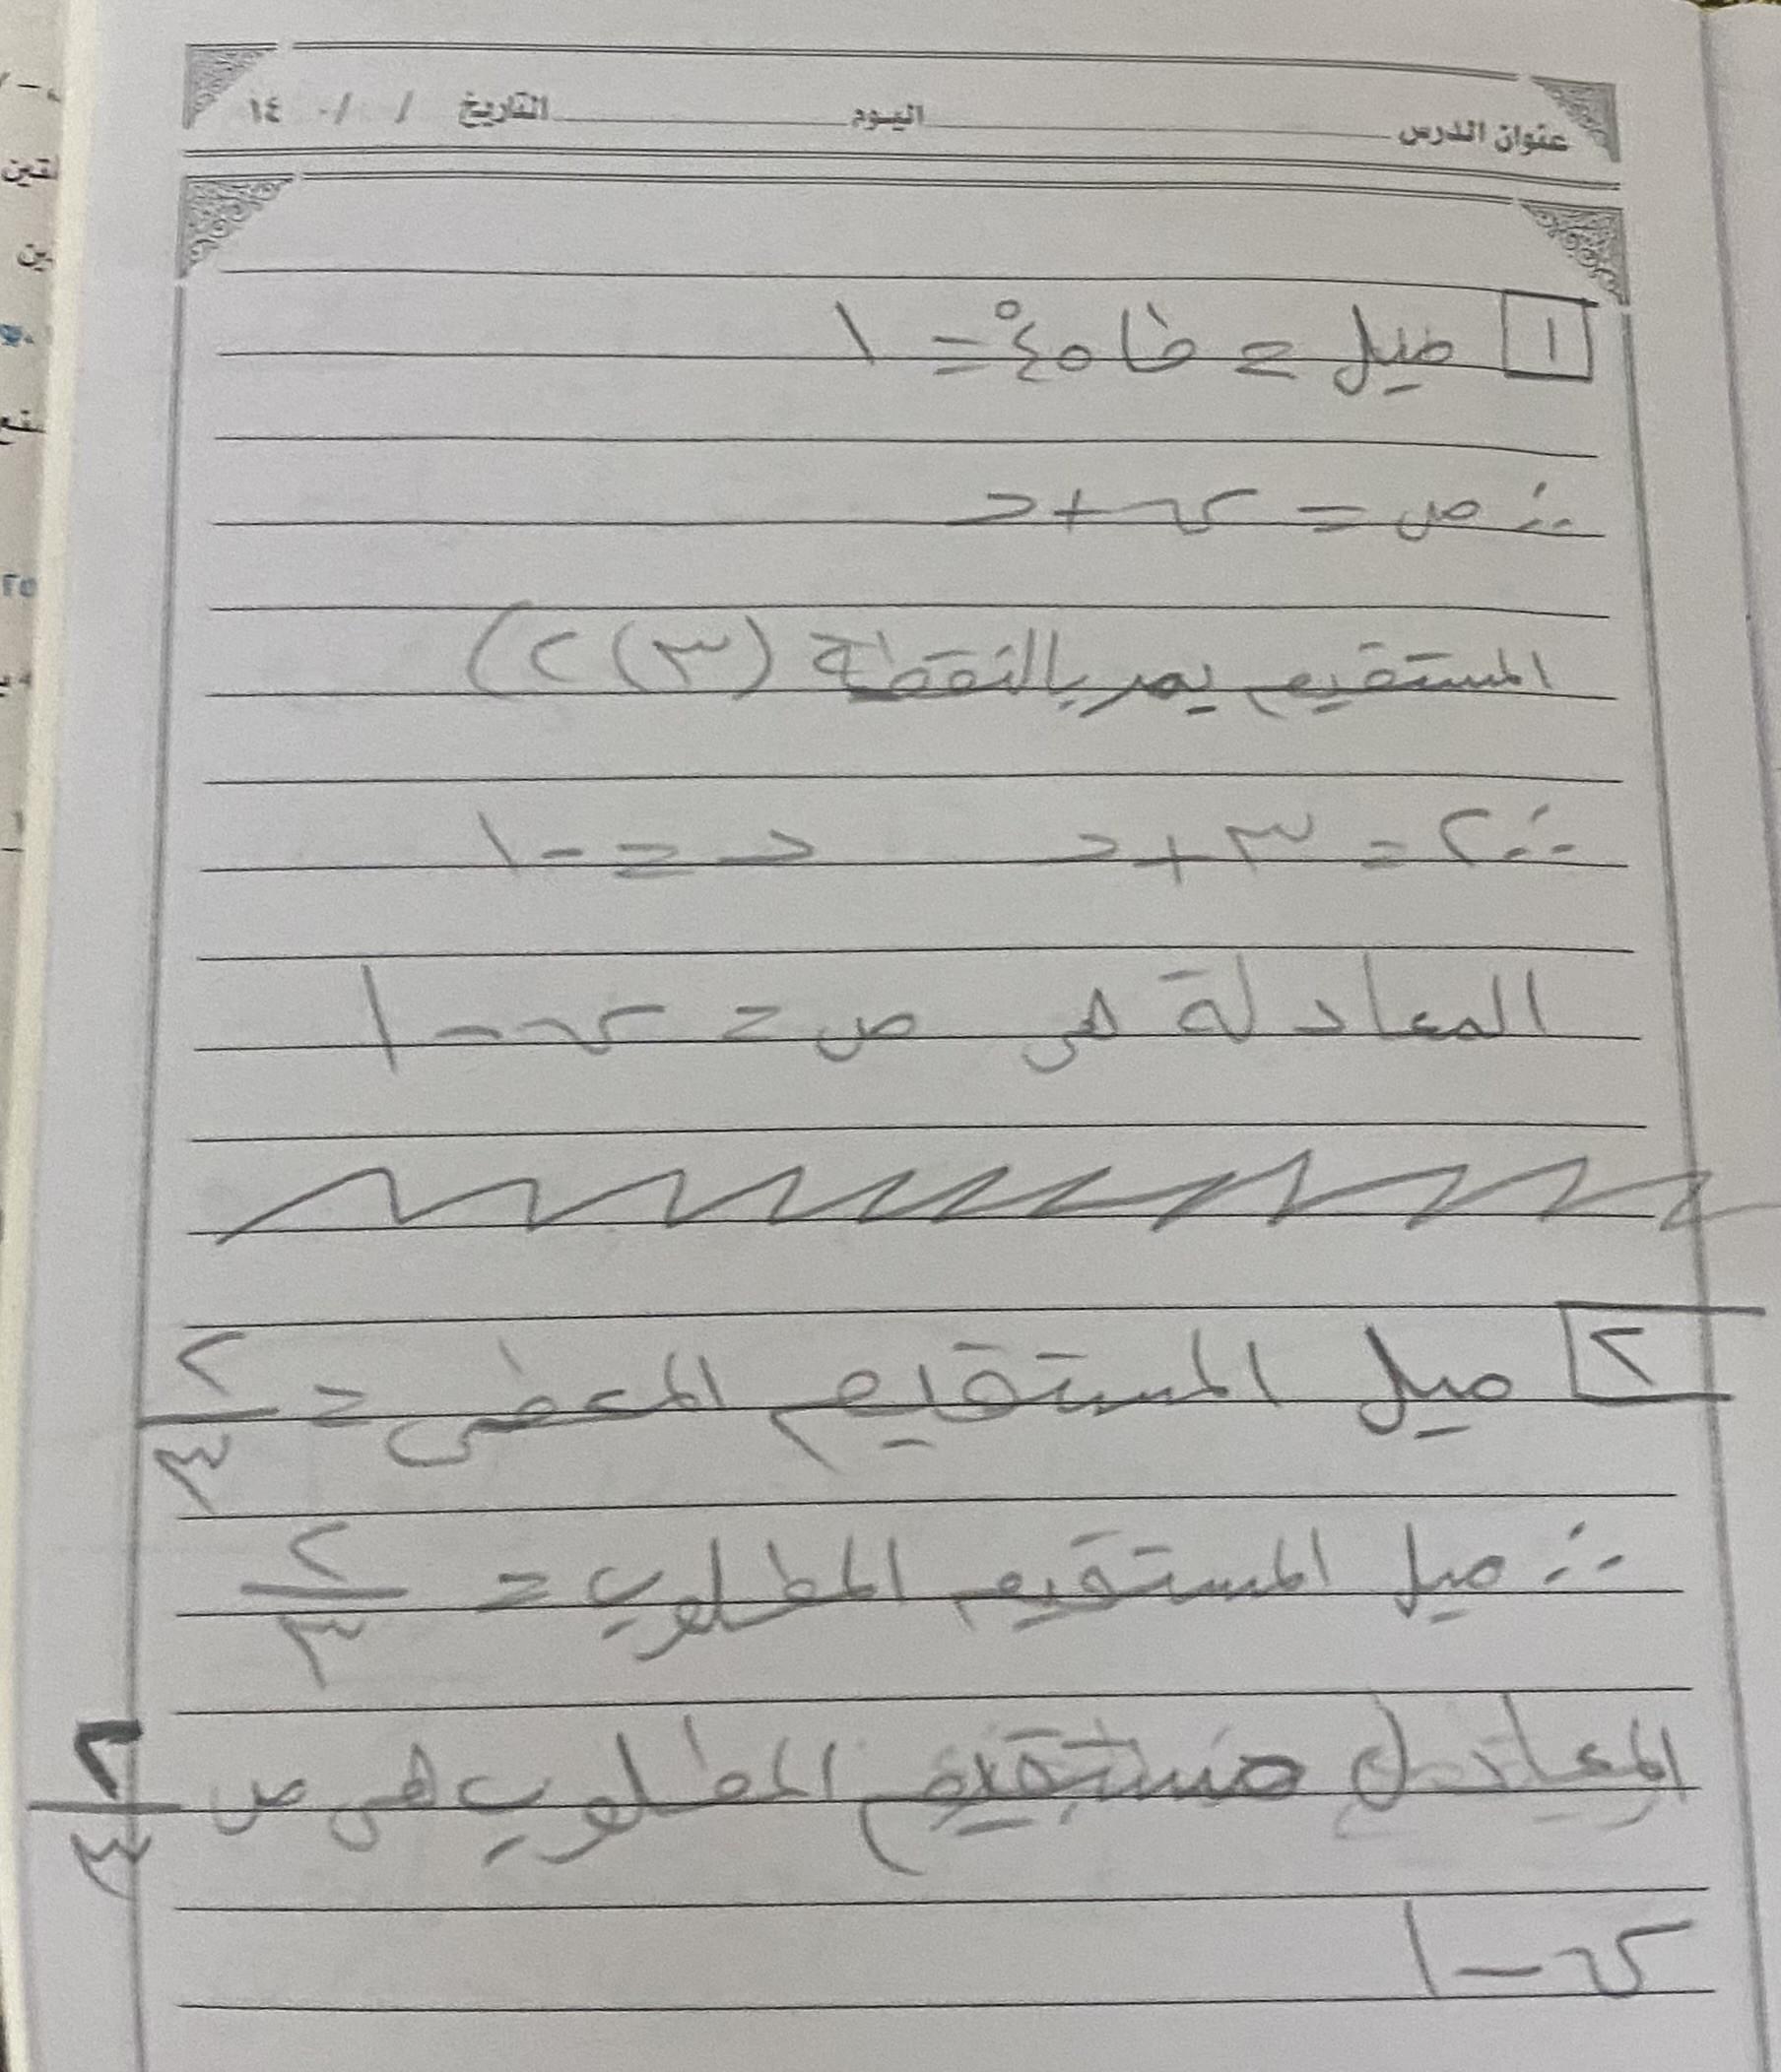 عنوان الدرس اليوم التاريخ / / ١٤٠
١ ميل = ظا ٤٥° = ١
∴ ص = س + ح
المستقيم يمر بالنقطة (٣، ٢)
∴ ٢ = ٣ + ح ح = -١
المعادلة هى ص = س - ١
٢ ميل المستقيم المعطى = ٢/٣
∴ ميل المستقيم المطلوب = ٢/٣
المعادل مستقيم المطلوب هى ص ٢/٣
س - ١